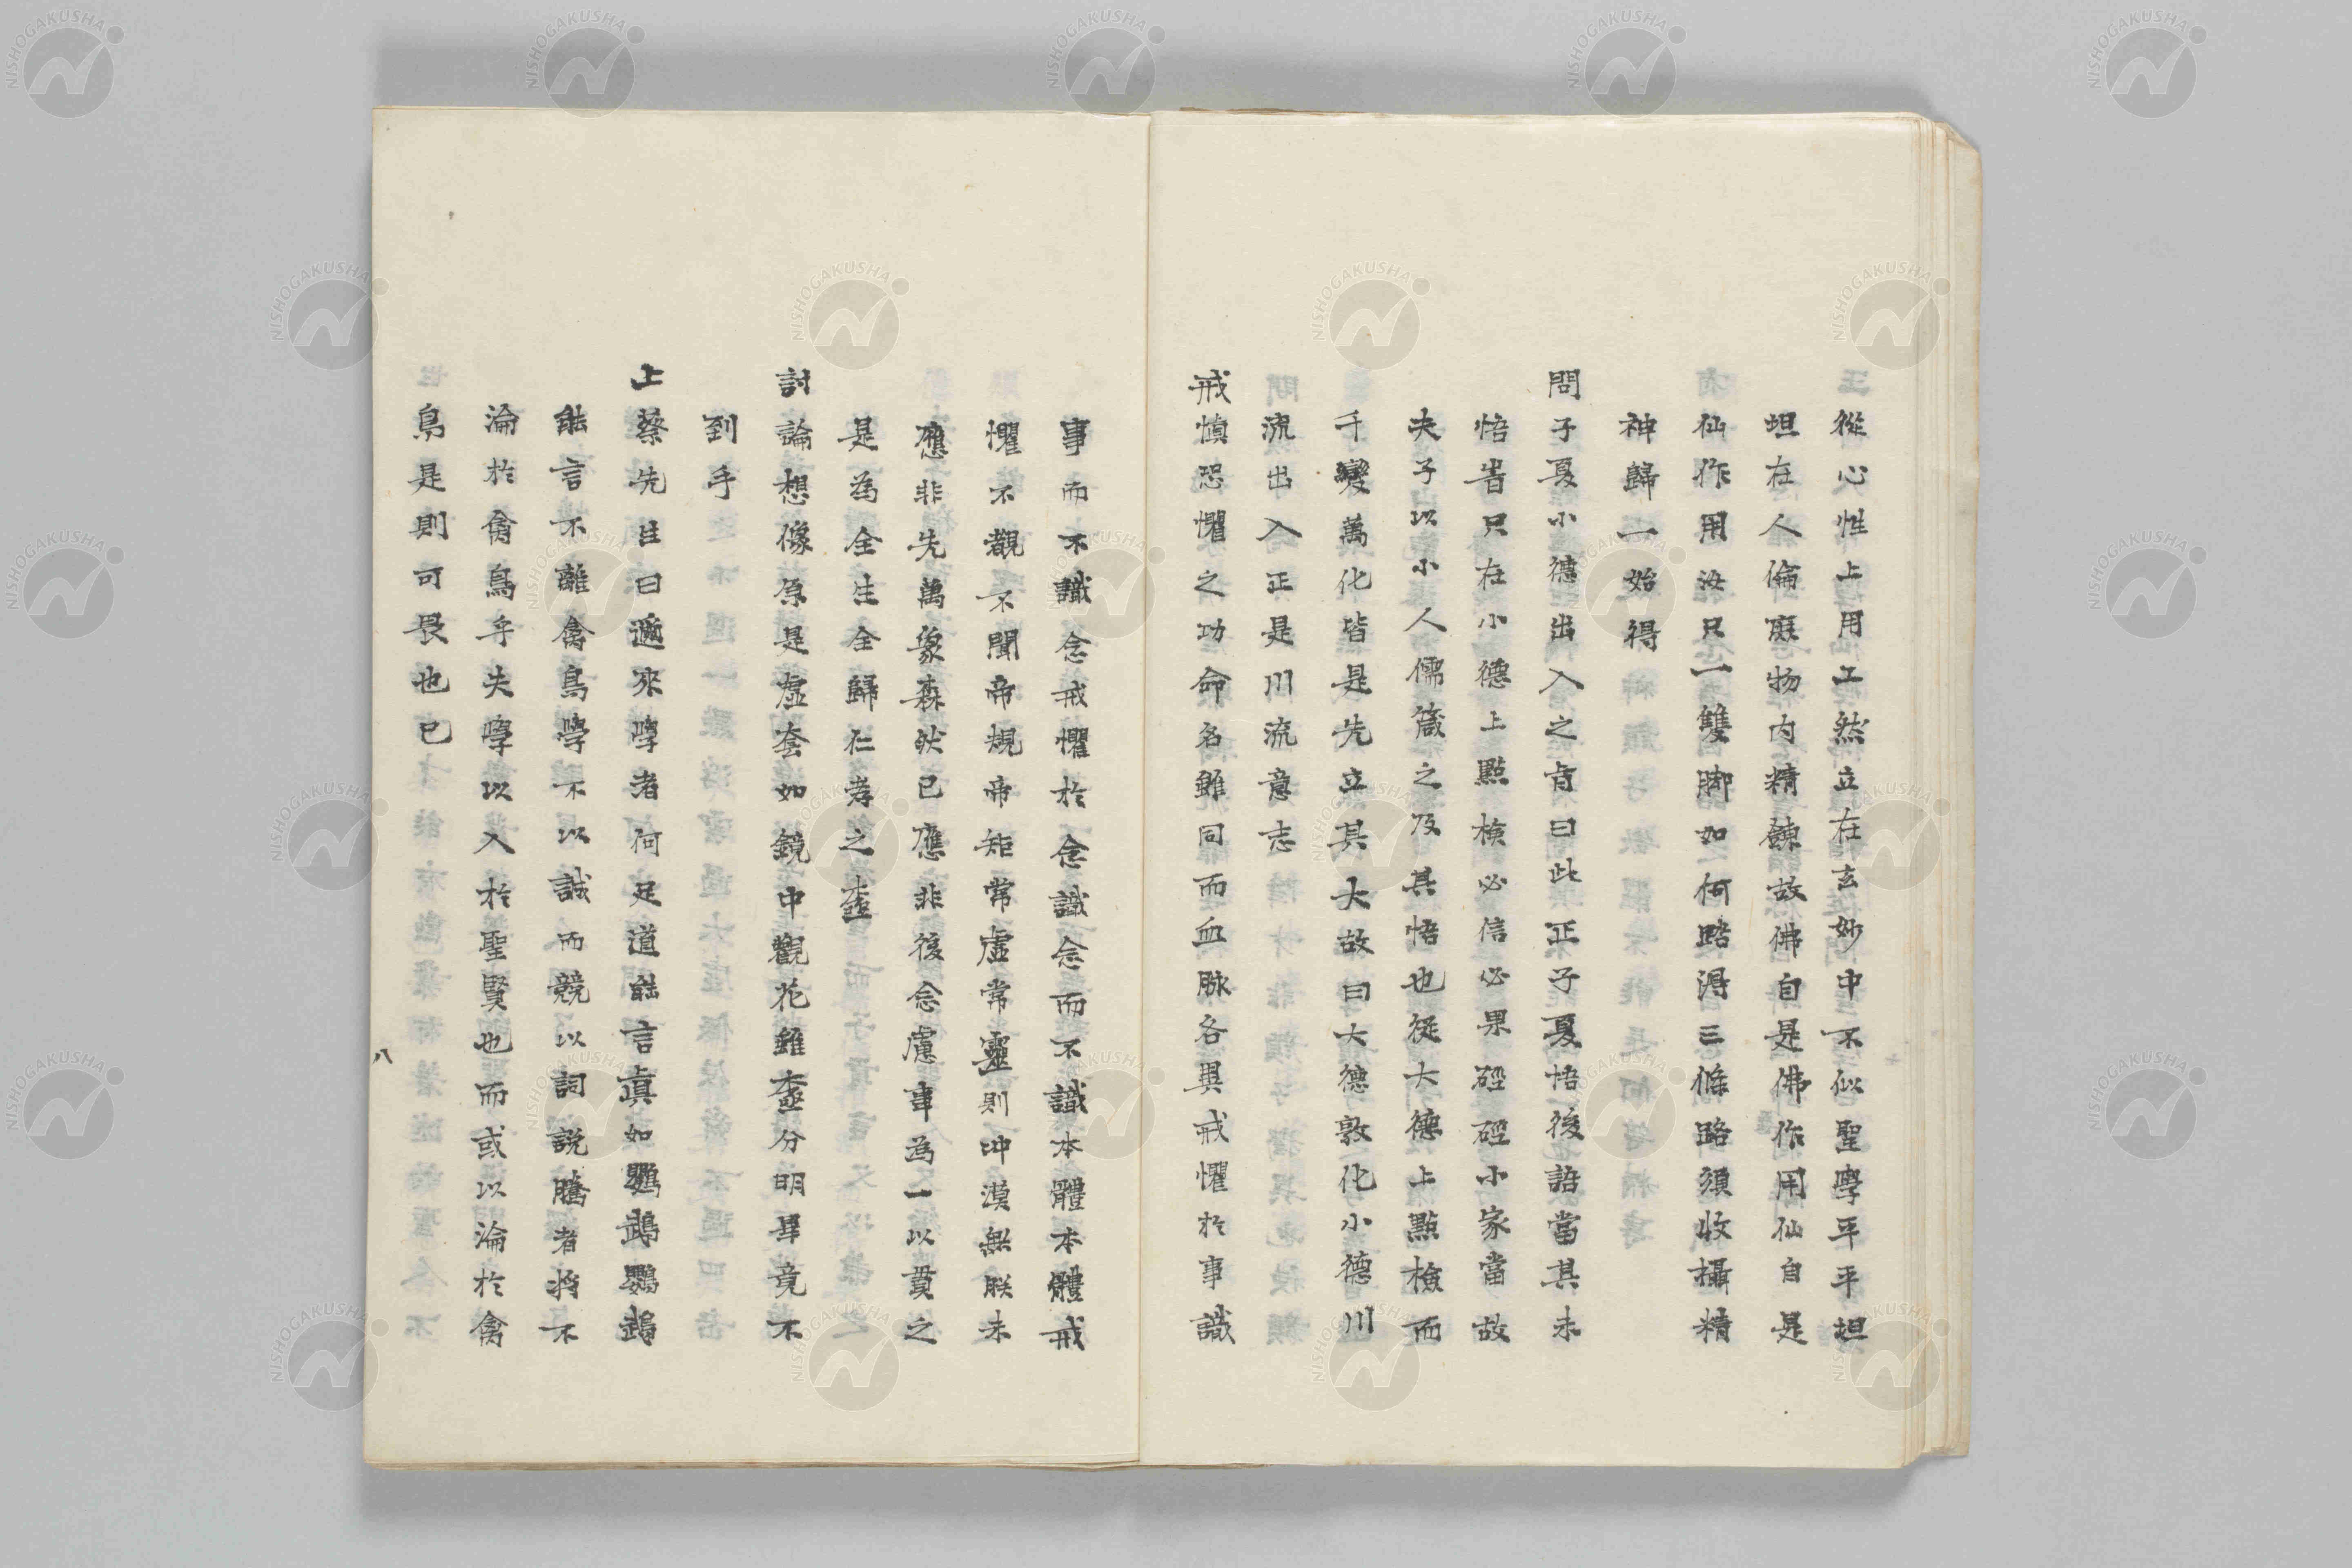 從心性上用工然立在玄妙中不似聖學平平坦
坦在人倫庶物内精鍊故佛自是佛作用仙自是
仙作用汝只一雙脚如何踏得三條路須收攝精
神歸一始得
問子夏小德出入之旨曰此正子夏悟後語當其未
悟昔只在小德上點檢必信必果硜硜小家當故
夫子以小人儒箴之及其悟也從大德上點檢而
千變萬化皆是先立其大故曰大德敦化小德川
流出入正是川流意志
戒慎恐懼之功命名雖同而血脉各異戒懼於事識
事而不識念戒懼於念識念而不識本體本體戒
懼不覩不聞帝規帝矩常虛常靈則冲漠無朕未
應非先萬象森然已應非後念慮事為一以貫之
是為全生全歸仁孝之
討論想像原是虛套如鏡中觀花雖分明畢竟不
到手
上蔡先生曰邇來學者何足道能言真如鸚鵡鸚鵡
能言不離禽鳥學不以誠而競以詞說騰者將不
淪於禽鳥乎夫學以入於聖賢也而或以淪於禽
鳥是則可畏也已
八
NISHOGAKUSHA